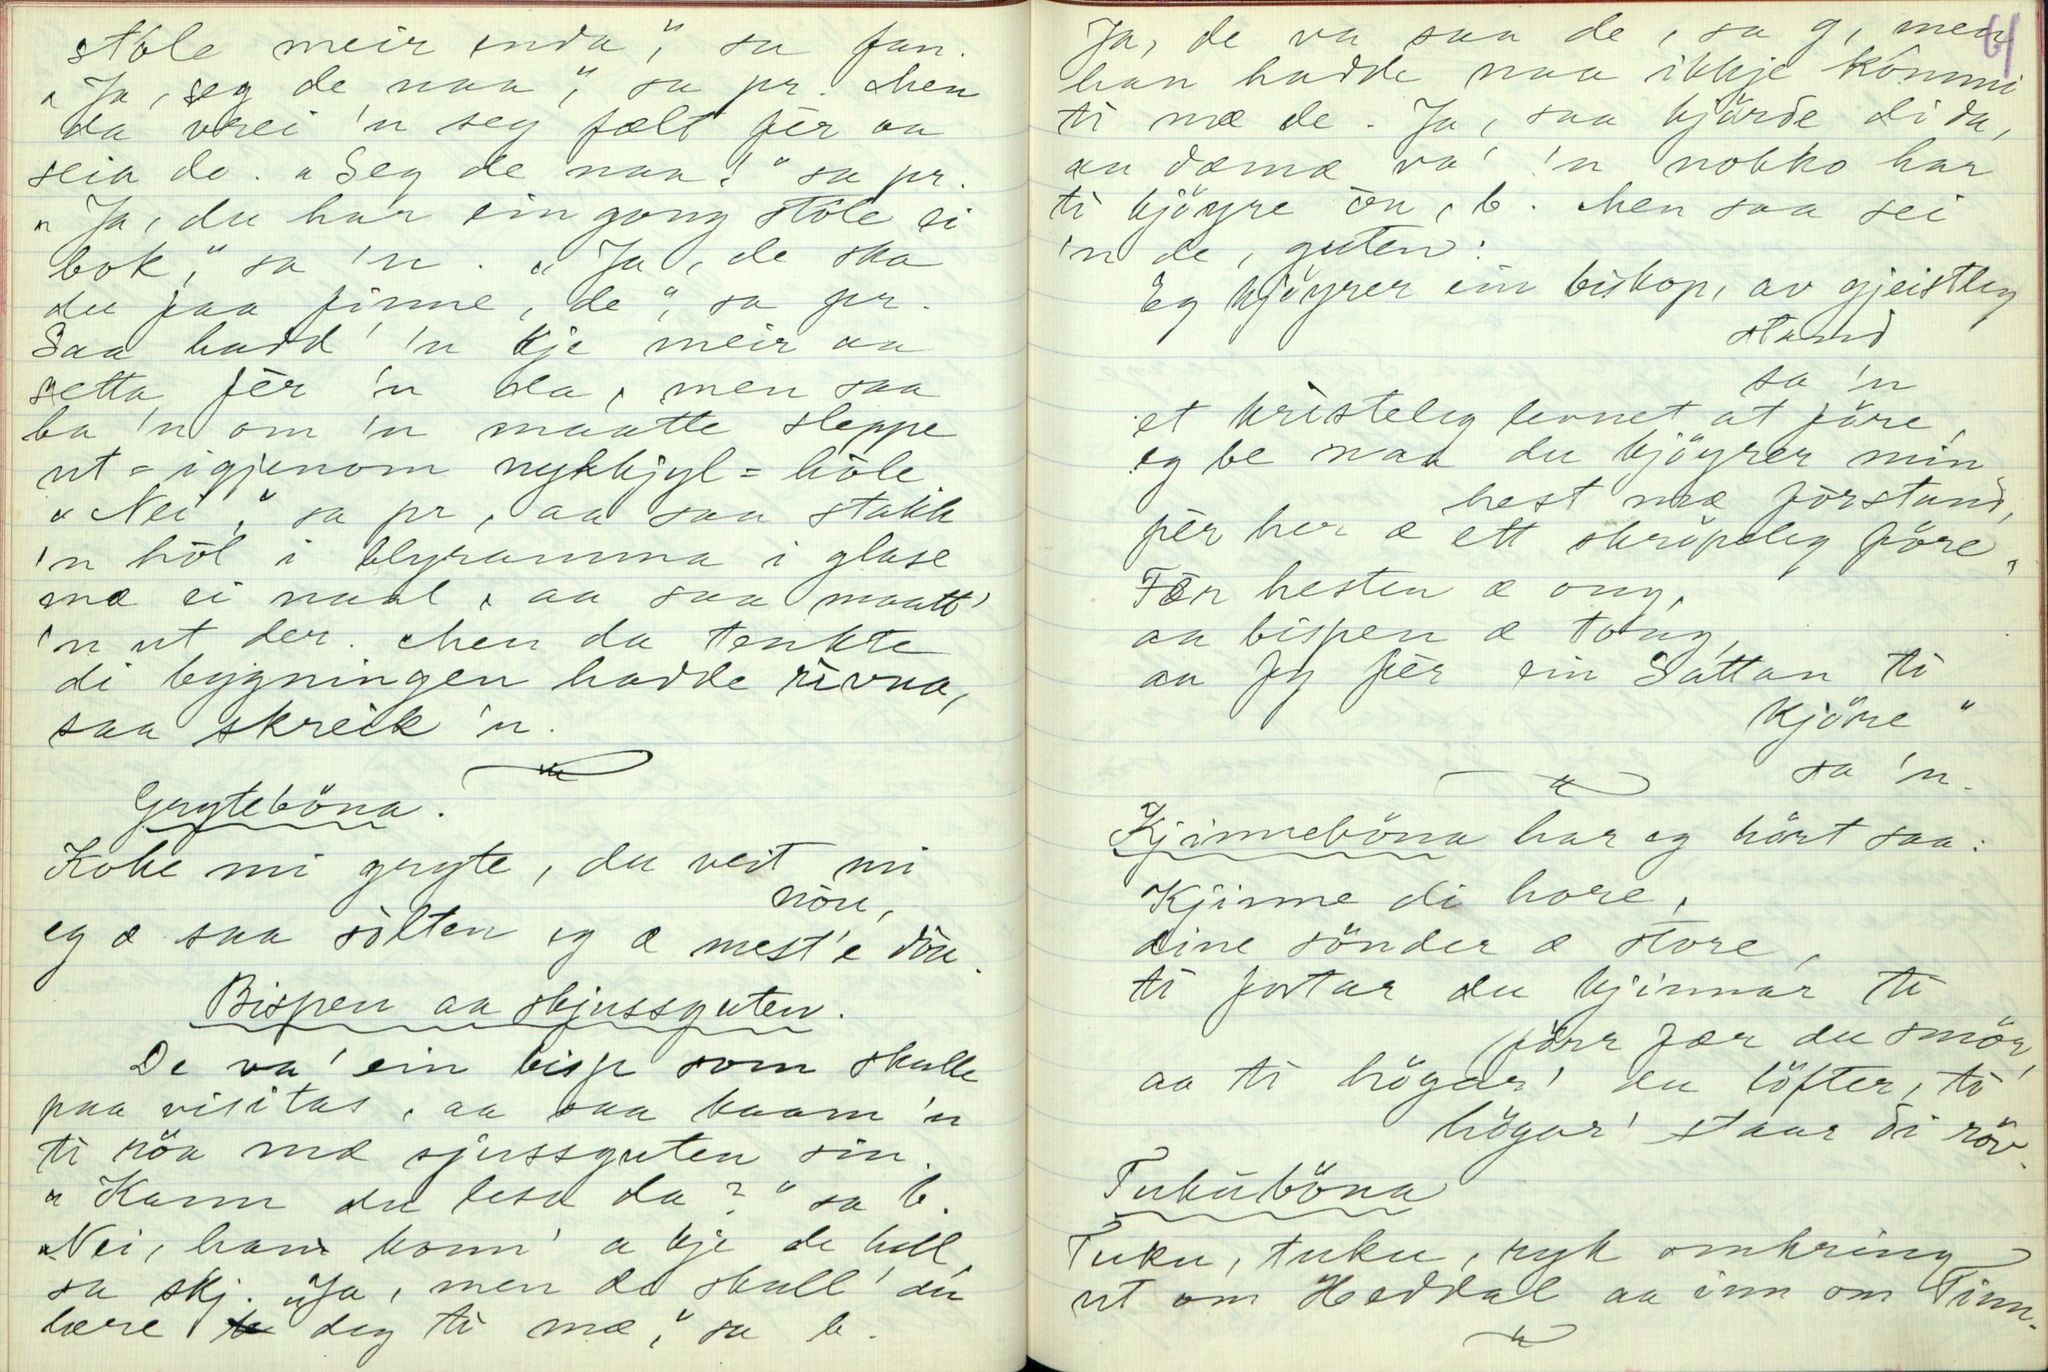 stole meir enda", sa fan.
"Ja, seg de naa", sa pr. Men
da vrei 'n seg fælt fèr aa
seia de. "Seg de naa!" sa pr.
"Ja, du har ein gong stole ei
bok", sa 'n. "Ja, de ska
du faa finne, de", sa pr.
Saa hadd' 'n kje meir aa
setta fèr 'n da, men saa
ba 'n om 'n maatte sleppe
ut = igjenom nykkjyl = hòle.
"Nei", sa pr, aa saa stakk
'n hòl i blyramma i glase
mæ ei naal, aa saa maatt'
'n ut der. Men da tenkte
di bygningen hadde rivna,
saa skreik 'n.
Gryteböna.
Koke mi gryte, du veit mi
nöu,
eg æ saa sòlten eg æ mest'e döu.
Bispen aa skjussguten.
De va' ein bisp som skulle
paa visitas, aa saa kaam 'n
ti röa mæ sjussguten sin.
"Kann du lesa da?" sa b.
"Nei, han konn' a kje de hell,
sa skj. "Ja, men de skull' du
lære deg ti mæ", sa b.
61
Ja, de va saa de, sa g, men
han hadde naa ikkje kommi
ti mæ de. Ja, saa kjörde di da,
aa dæmæ va' 'n nokko har
ti kjöyre òn, b. Men saa sei
'n de, guten:
Eg kjöyrer ein biskop, av gjeistleg
stand
sa 'n
et kristeleg levnet at före,
eg be naa du kjöyrer min
hest mæ forstand,
fèr her æ ett skröpeleg före,
Fèr hesten æ ong,
aa bispen æ tong,
aa jeg fèr ein Sattan ti
kjöre"
sa 'n.
Kjinneböna har eg hört saa:
Kjinne di hore,
dine sönder æ store,
ti fortar du kjinnar ti
förr fær du smör,
aa ti högar' du löfter, ti
högar' staar di röv.
Tukuböna
Tuku, tuku, ryk omkring
ut om Heddal aa inn om Tinn.